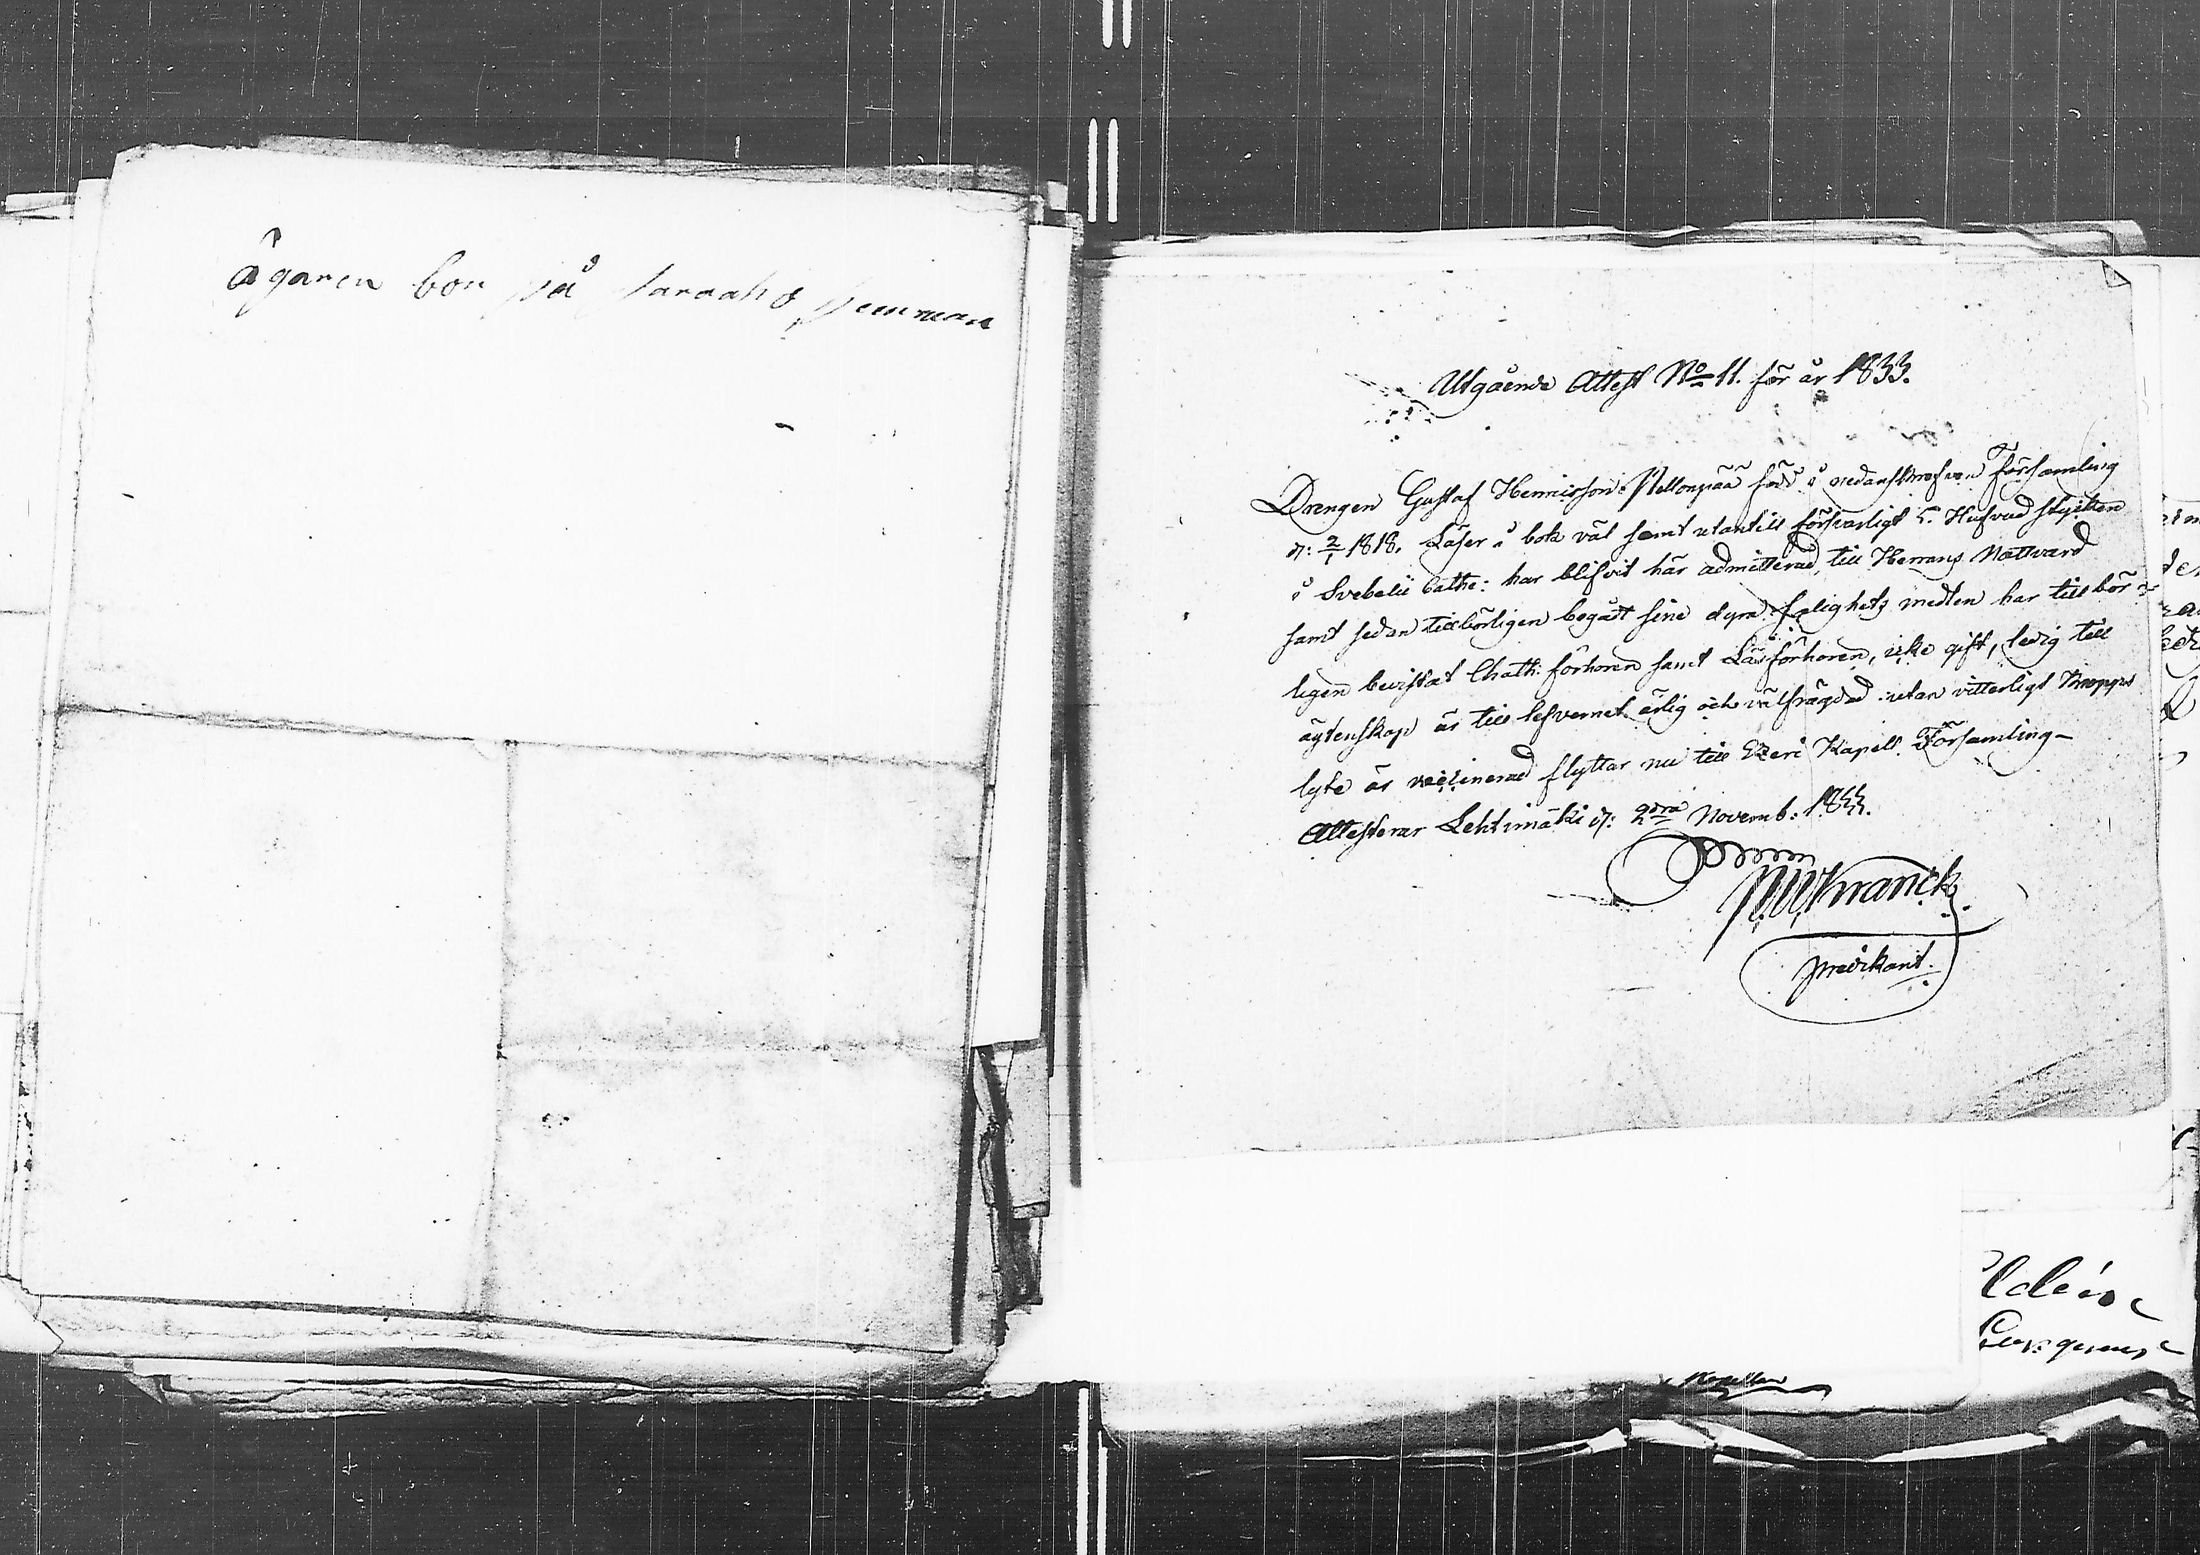 Ägaren bor på
Utgående Attest No 11. för år 1833.
Drengen Gustaf Hemiasson Mellonpää född i nedanskrefven Församling
d: 2/1 1818. Läser i bok väl samt utantill försvarligt 5. Hufvud stycken
i Svebelii Cathe: har blifvit här admitterad till Herrans Nattvard
samt sedan tillbörligen begått sine dyra salighets medlen har tillbör=
ligen bevistat Chath: förhören samt Läsförhören, icke gift, ledig till
ägtenskap är till lefvernet ärlig och välfrägdad utan vitterligt kropps
lyte är vaccinerad flyttar nu till Etzeri Kapell Församling-
Attesterar Lehtimäki d: 2dra Novemb: 1833.
Kranck
predikant.
Kapellan